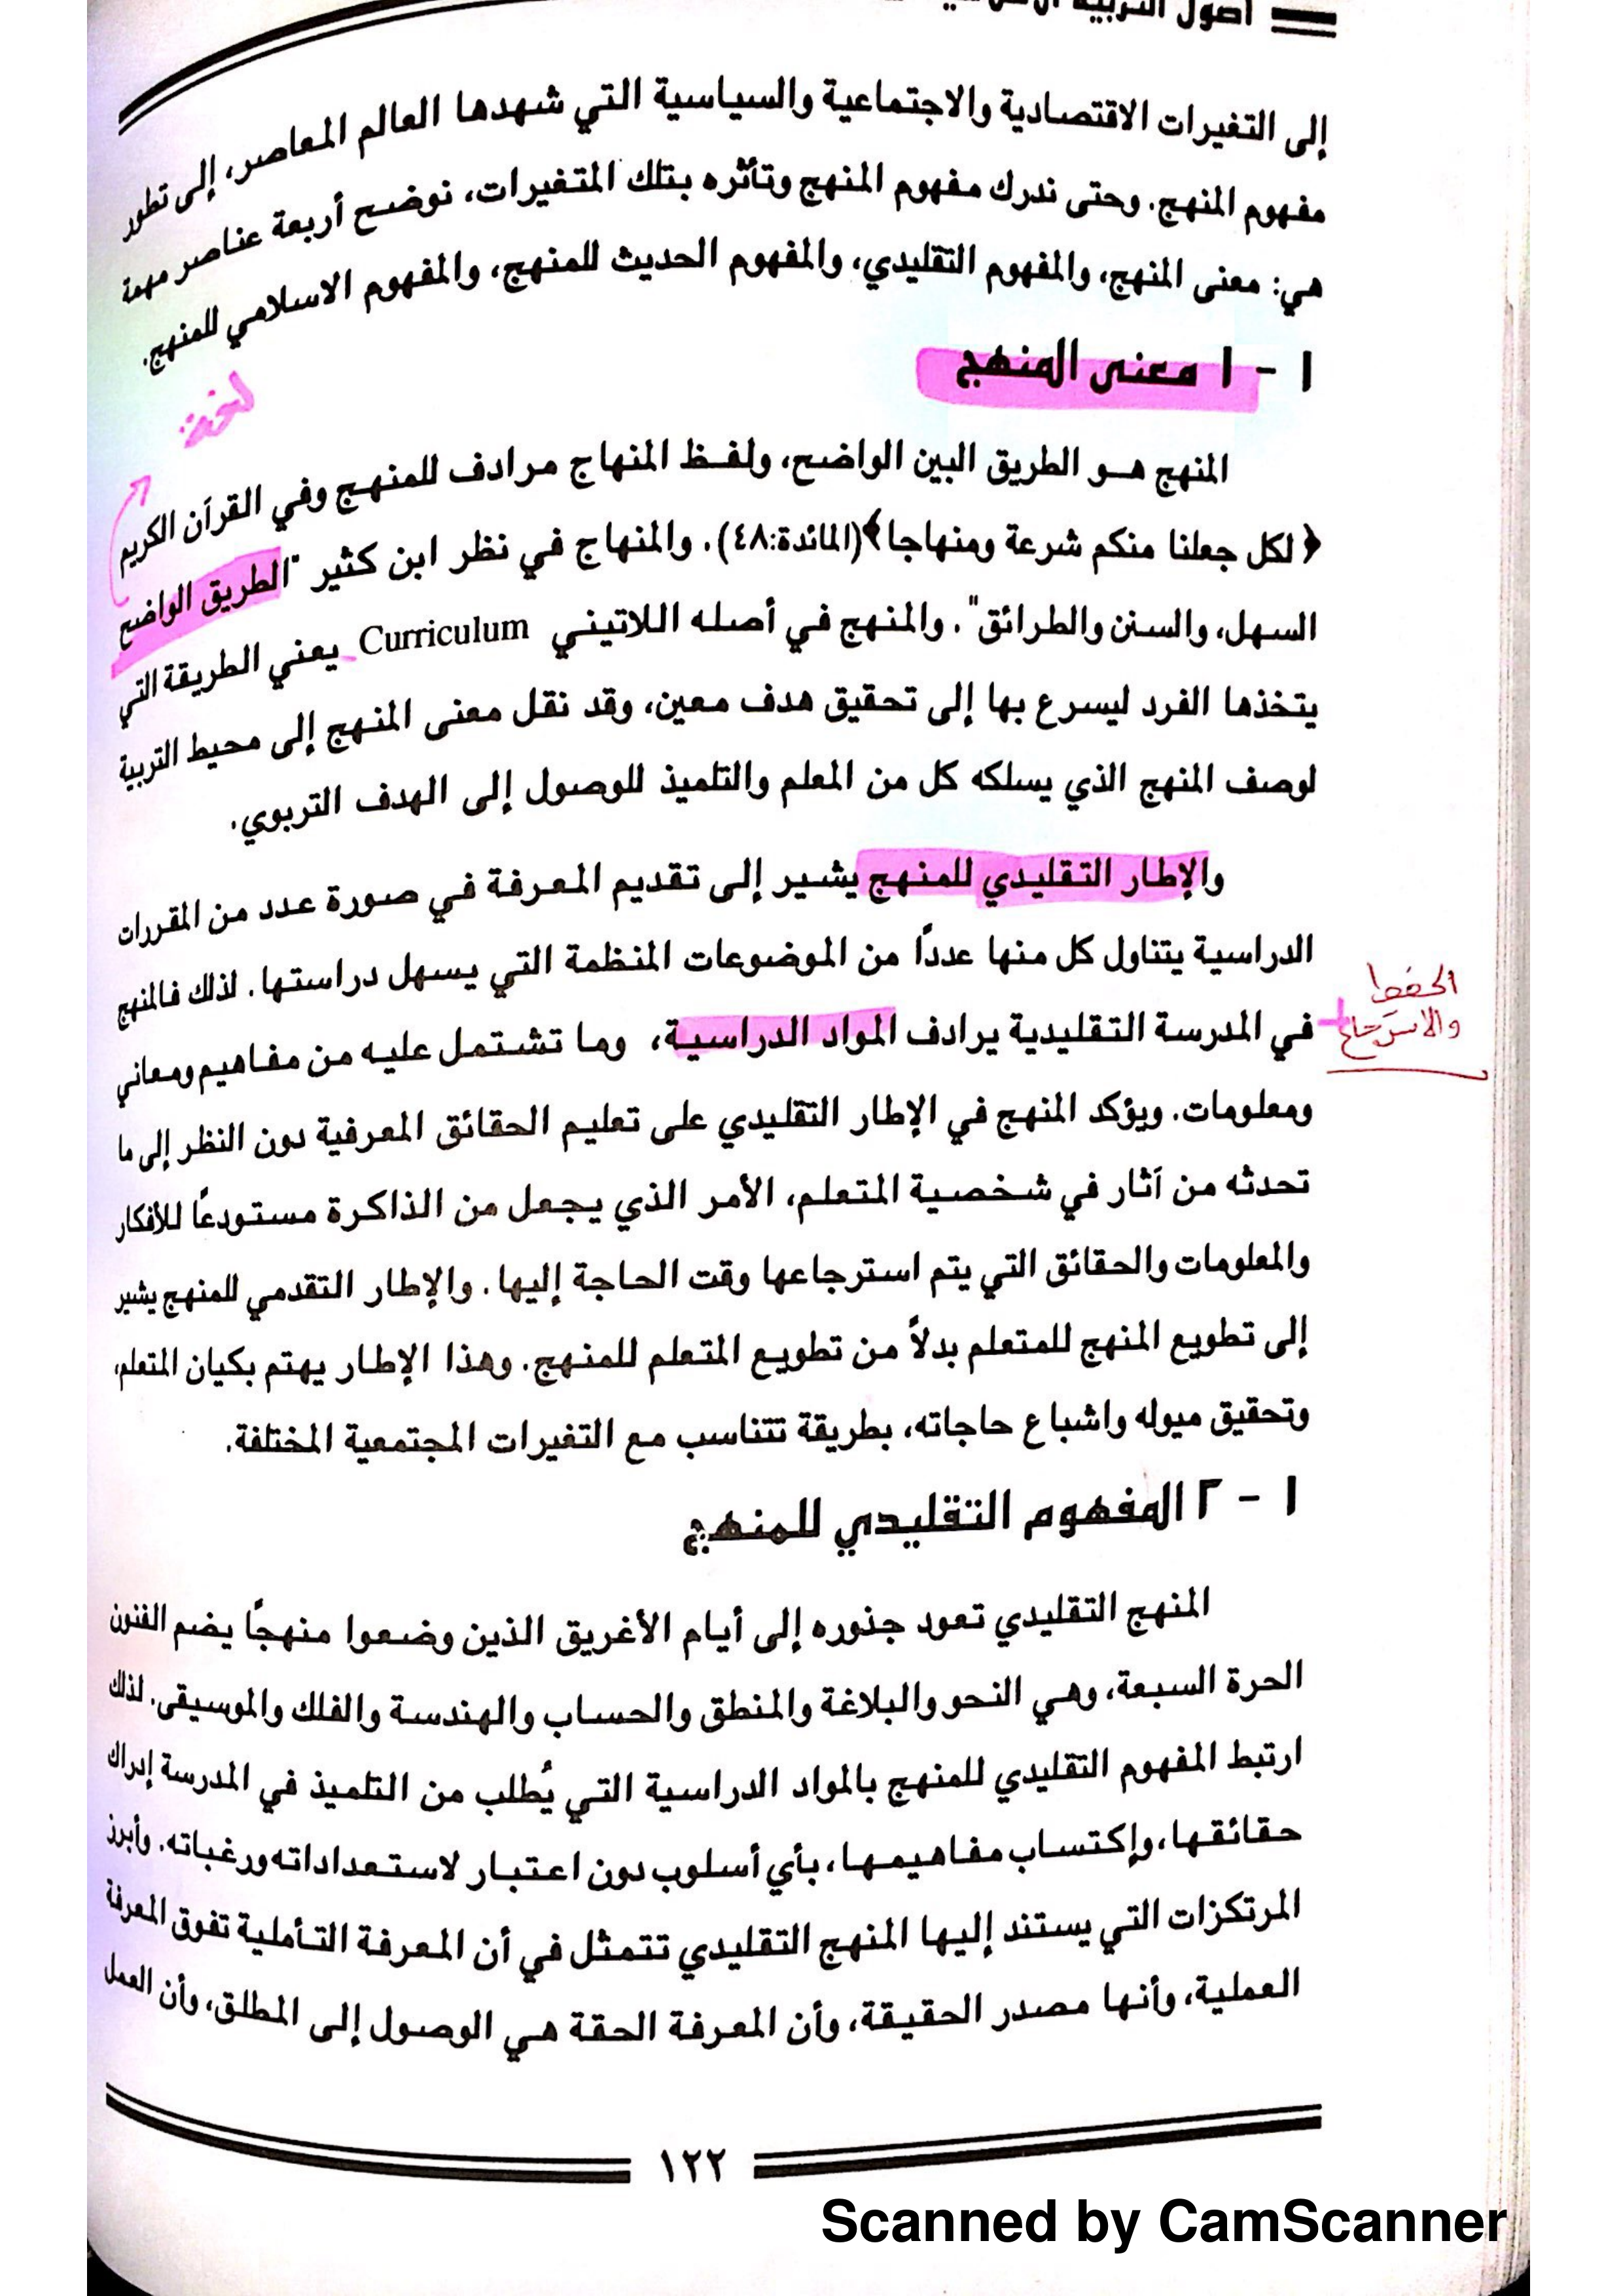 أصول التربية
إلى التغيرات الاقتصادية والاجتماعية والسياسية التي شهدها العالم المعاصر، إلى تطور
مفهوم المنهج. وحتى ندرك مفهوم المنهج وتأثره بتلك المتغيرات، نوضح أربعة عناصر مهمة
هي: معنى المنهج، والمفهوم التقليدي، والمفهوم الحديث للمنهج، والمفهوم الاسلامي للمنهج.
١ - ١ معنى المنهج
لغة:
المنهج هو الطريق البين الواضح، ولفظ المنهاج مرادف للمنهج وفي القرآن الكريم
﴿ لكل جعلنا منكم شرعة ومنهاجا﴾(المائدة:٤٨). والمنهاج في نظر ابن كثير "الطريق الواضح
السهل، والسنن والطرائق". والمنهج في أصله اللاتيني Curriculum يعني الطريقة التي
يتخذها الفرد ليسرع بها إلى تحقيق هدف معين، وقد نقل معنى المنهج إلى محيط التربية
لوصف المنهج الذي يسلكه كل من المعلم والتلميذ للوصول إلى الهدف التربوي.
والإطار التقليدي للمنهج يشير إلى تقديم المعرفة في صورة عدد من المقررات
الدراسية يتناول كل منها عددًا من الموضوعات المنظمة التي يسهل دراستها. لذلك فالمنهج
الحفظ
والاسترجاع
في المدرسة التقليدية يرادف المواد الدراسية، وما تشتمل عليه من مفاهيم ومعاني
ومعلومات. ويؤكد المنهج في الإطار التقليدي على تعليم الحقائق المعرفية دون النظر إلى ما
تحدثه من آثار في شخصية المتعلم، الأمر الذي يجعل من الذاكرة مستودعًا للأفكار
والمعلومات والحقائق التي يتم استرجاعها وقت الحاجة إليها. والإطار التقدمي للمنهج يشير
إلى تطويع المنهج للمتعلم بدلاً من تطويع المتعلم للمنهج. وهذا الإطار يهتم بكيان المتعلم،
وتحقيق ميوله واشباع حاجاته، بطريقة تتناسب مع التغيرات المجتمعية المختلفة.
١ - ٢ المفهوم التقليدي للمنهج
المنهج التقليدي تعود جذوره إلى أيام الأغريق الذين وضعوا منهجًا يضم الفنون
الحرة السبعة، وهي النحو والبلاغة والمنطق والحساب والهندسة والفلك والموسيقى. لذلك
ارتبط المفهوم التقليدي للمنهج بالمواد الدراسية التي يُطلب من التلميذ في المدرسة إدراك
حقائقها، وإكتساب مفاهيمها، بأي أسلوب دون اعتبار لاستعداداته ورغباته. وأبرز
المرتكزات التي يستند إليها المنهج التقليدي تتمثل في أن المعرفة التأملية تفوق المعرفة
العملية، وأنها مصدر الحقيقة، وأن المعرفة الحقة هي الوصول إلى المطلق، وأن العمل
١٢٢
Scanned by CamScanner